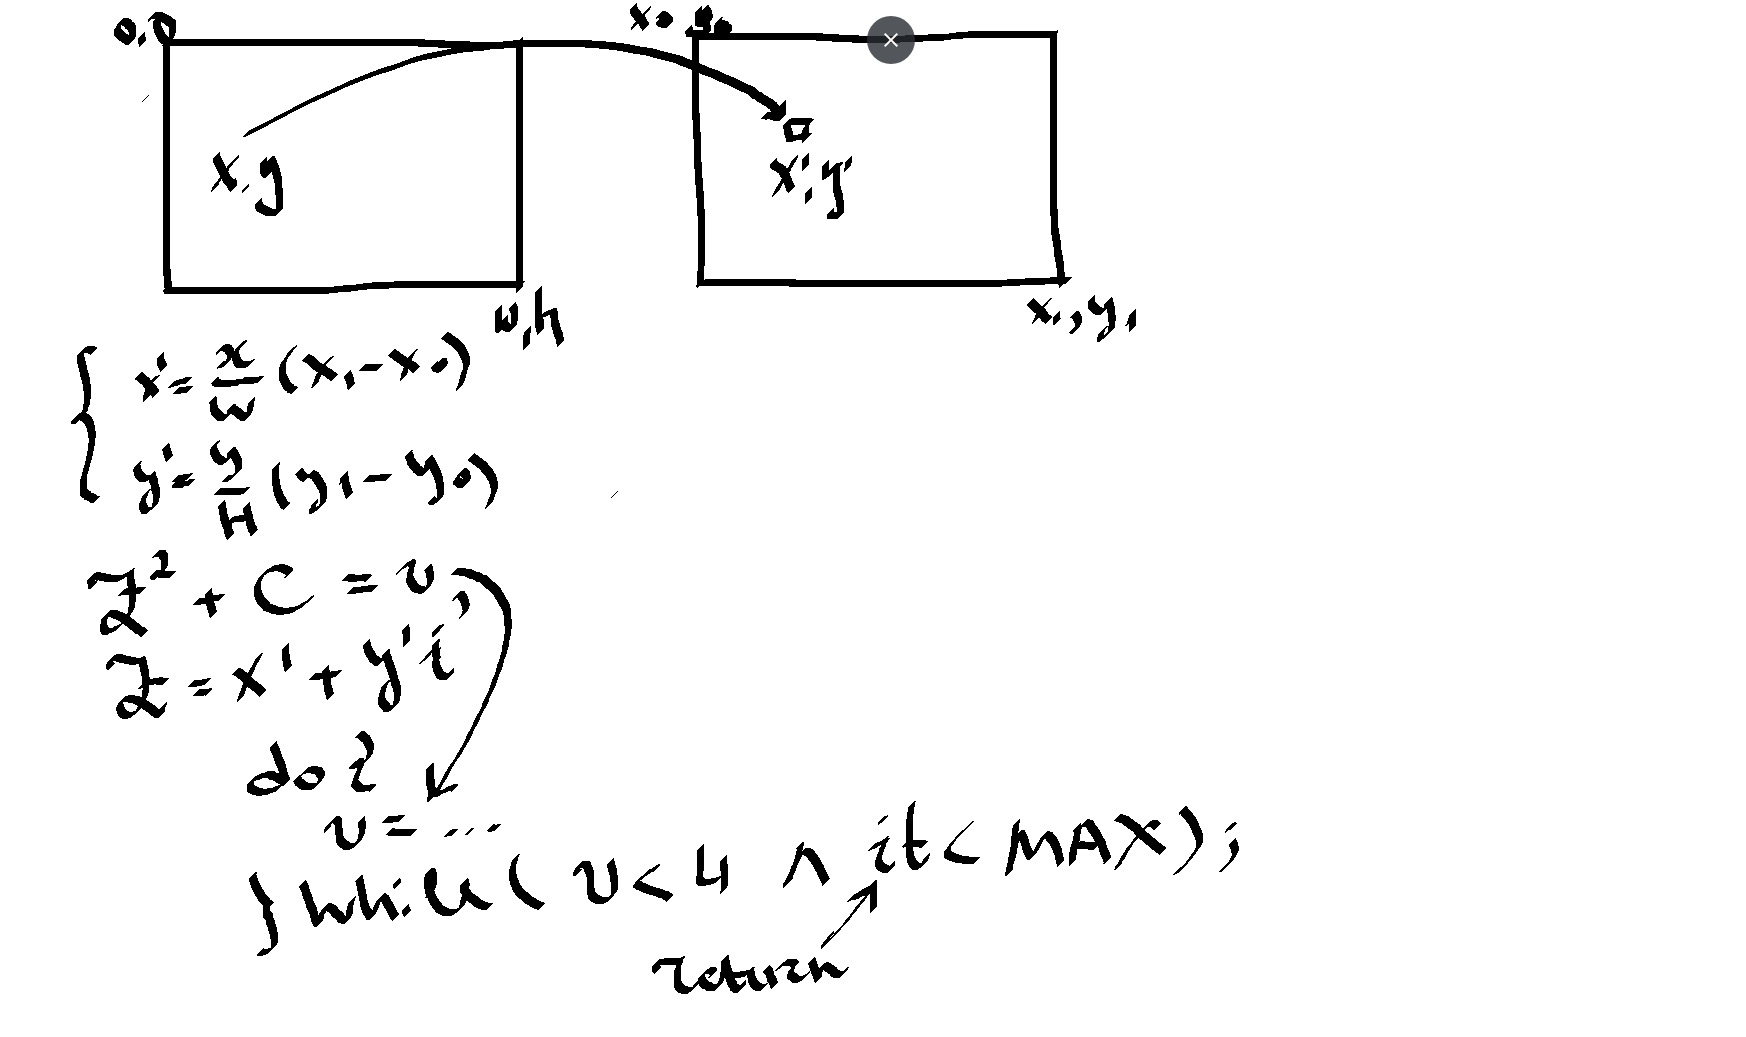 0.0
x0 y0
x.y
x'.y'
w,h
x1,y1
x'= x/w (x1-x0)
y'= y/H (y1-y0)
Z² + C = v,
Z = x' + y'i
do {
v = ...
} while ( v < 4 ∧ it < MAX);
return